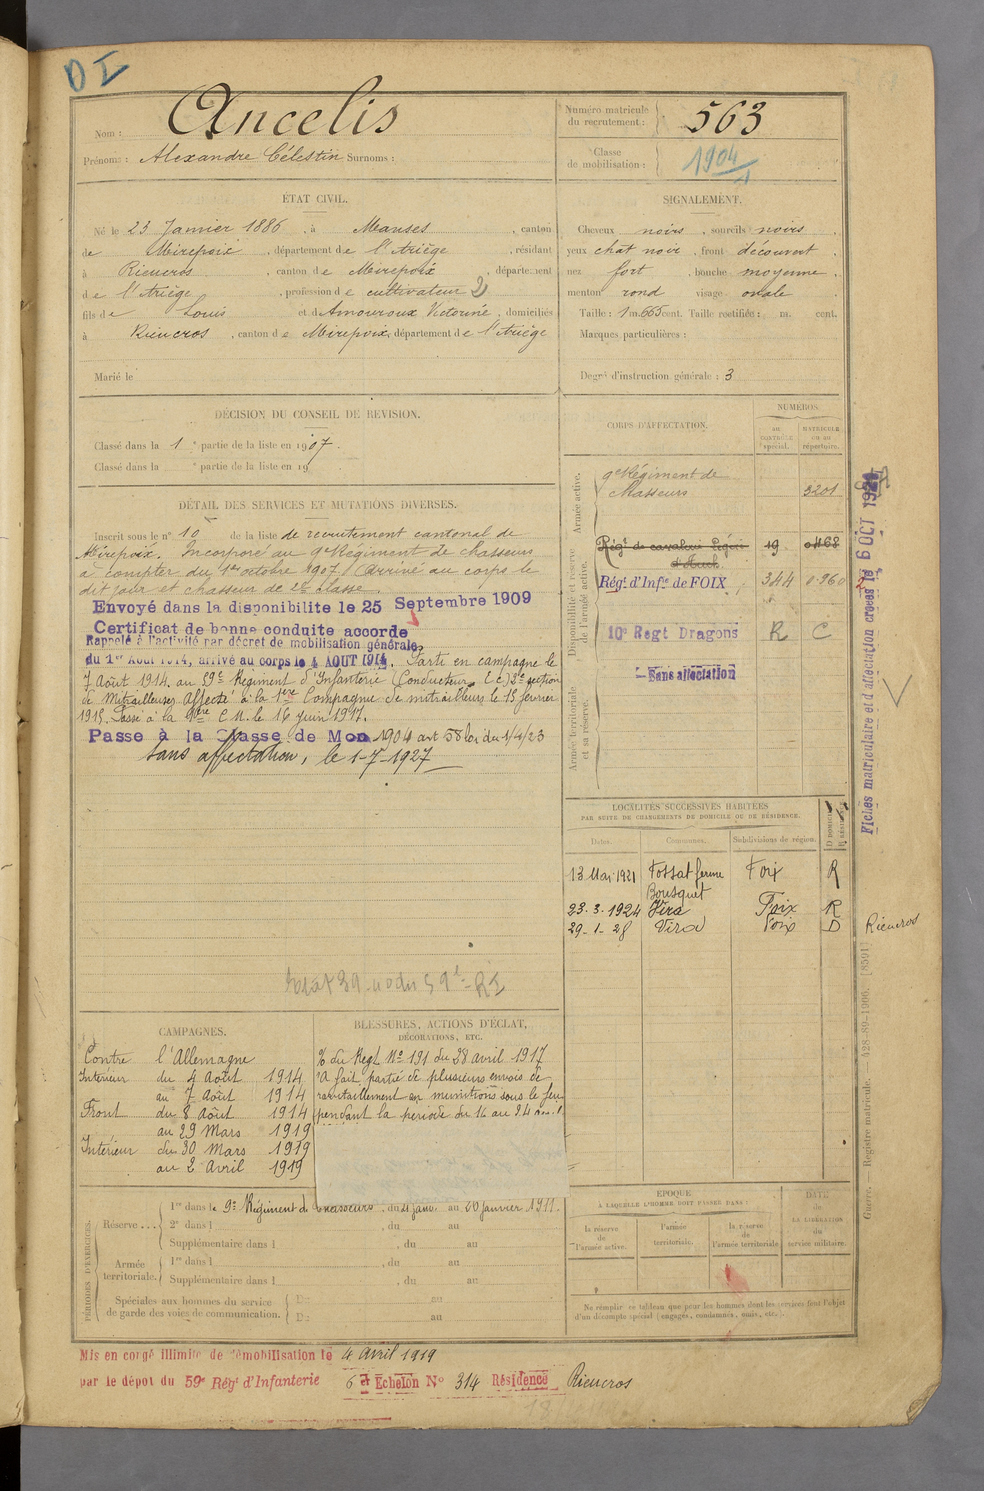 DI
Nom : Ancelis
Prénoms : Alexandre Célestin Surnoms :
Numéro matricule du recrutement : 563
Classe de mobilisation : 1904
ÉTAT CIVIL.
Né le 23 Janvier 1886, à Manses, canton
de Mirepoix, département de l'Ariège, résidant
à Rieucros, canton de Mirepoix, département
de l'Ariège, profession de cultivateur 2
fils de Louis et de Amouroux Victorine, domiciliés
à Rieucros, canton de Mirepoix, département de l'Ariège
Marié le
SIGNALEMENT.
Cheveux noirs, sourcils noirs,
yeux chat noir, front découvert,
nez fort, bouche moyenne,
menton rond visage ovale
Taille : 1 m. 665 cent. Taille rectifiée : m. cent.
Marques particulières :
Degré d'instruction générale : 3
DÉCISION DU CONSEIL DE REVISION.
Classé dans la 1e partie de la liste en 1907.
Classé dans la e partie de la liste en 19
DÉTAIL DES SERVICES ET MUTATIONS DIVERSES.
Inscrit sous le n° 10 de la liste de recrutement cantonal de
Mirepoix. Incorporé au 9e Régiment de chasseurs
à compter du 1er octobre 1907. Arrivé au corps le
dit jour et chasseur de 2e classe.
Envoyé dans la disponibilité le 25 Septembre 1909
Certificat de bonne conduite accordé
Rappelé à l'activité par décret de mobilisation générale
du 1er Août 1914, arrivé au corps le 4 AOUT 1914. Parti en campagne le
7 Août 1914. au 59e Régiment d'Infanterie (Conducteur E C) 3e section
de Mitrailleuses Affecté à la 1ère Compagnie de mitrailleurs le 15 février
1915. Passé à la C M. le 16 juin 1917.
Passé à la Classe de Mob 1904 art 58 loi du 1/4/23
sans affectation, le 1-7-1927
59e RI
CORPS D'AFFECTATION.
NUMÉROS
AU CONTRÔLE spécial.
MATRICULE ou au répertoire.
Armée active.
9e Régiment de Chasseurs 3201
Disponibilité et réserve de l'armée active.
Régt de cavalerie Légère d'Auch. 19 0468
Régt d'Infie de FOIX 344 0960
10e Regt Dragons R C
Armée territoriale et sa réserve.
Sans affectation
LOCALITÉS SUCCESSIVES HABITÉES
PAR SUITE DE CHANGEMENTS DE DOMICILE OU DE RÉSIDENCE.
Dates. Communes. Subdivisions de région. D DOMICILE R RÉSIDENCE
13 Mai 1921 Fossat ferme Bousquet Foix R
23.3.1924 Vira Foix R
29-1-28 Vira Foix D
Rieucros
Fiches matriculaire et d'affectation créées le 6 OCT 192
Guerre. — Registre matricule. — 428-89-1906. [8501]
CAMPAGNES.
Contre l'Allemagne
Intérieur du 4 Août 1914
au 7 Août 1914
Front du 8 Août 1914
au 29 Mars 1919
Intérieur du 30 Mars 1919
au 2 Avril 1919
BLESSURES, ACTIONS D'ÉCLAT,
DÉCORATIONS, ETC.
% du Regt No 191 du 28 avril 1917
"A fait partie de plusieurs envois de
ravitaillement en munitions sous le feu
pendant la période du 14 au 24
PÉRIODES D'EXERCICES.
Réserve.... 1re dans le 9e Régiment de Chasseurs, du au janvier 1911.
2e dans l , du au
Supplémentaire dans l , du au
Armée territoriale. 1re dans l , du au
Supplémentaire dans l , du au
Spéciales aux hommes du service de garde des voies de communication. Du au
Du au
ÉPOQUE
À LAQUELLE L'HOMME DOIT PASSER DANS :
la réserve de l'armée active.
l'armée territoriale.
la réserve de l'armée territoriale
DATE de LA LIBÉRATION du service militaire.
Ne remplir ce tableau que pour les hommes dont les services font l'objet
d'un décompte spécial (engagés, condamnés, omis, etc.).
Mis en congé illimité de démobilisation le 4 Avril 1919
par le dépot du 59e Régt d'Infanterie 6 e Echelon No 314 Résidence Rieucros